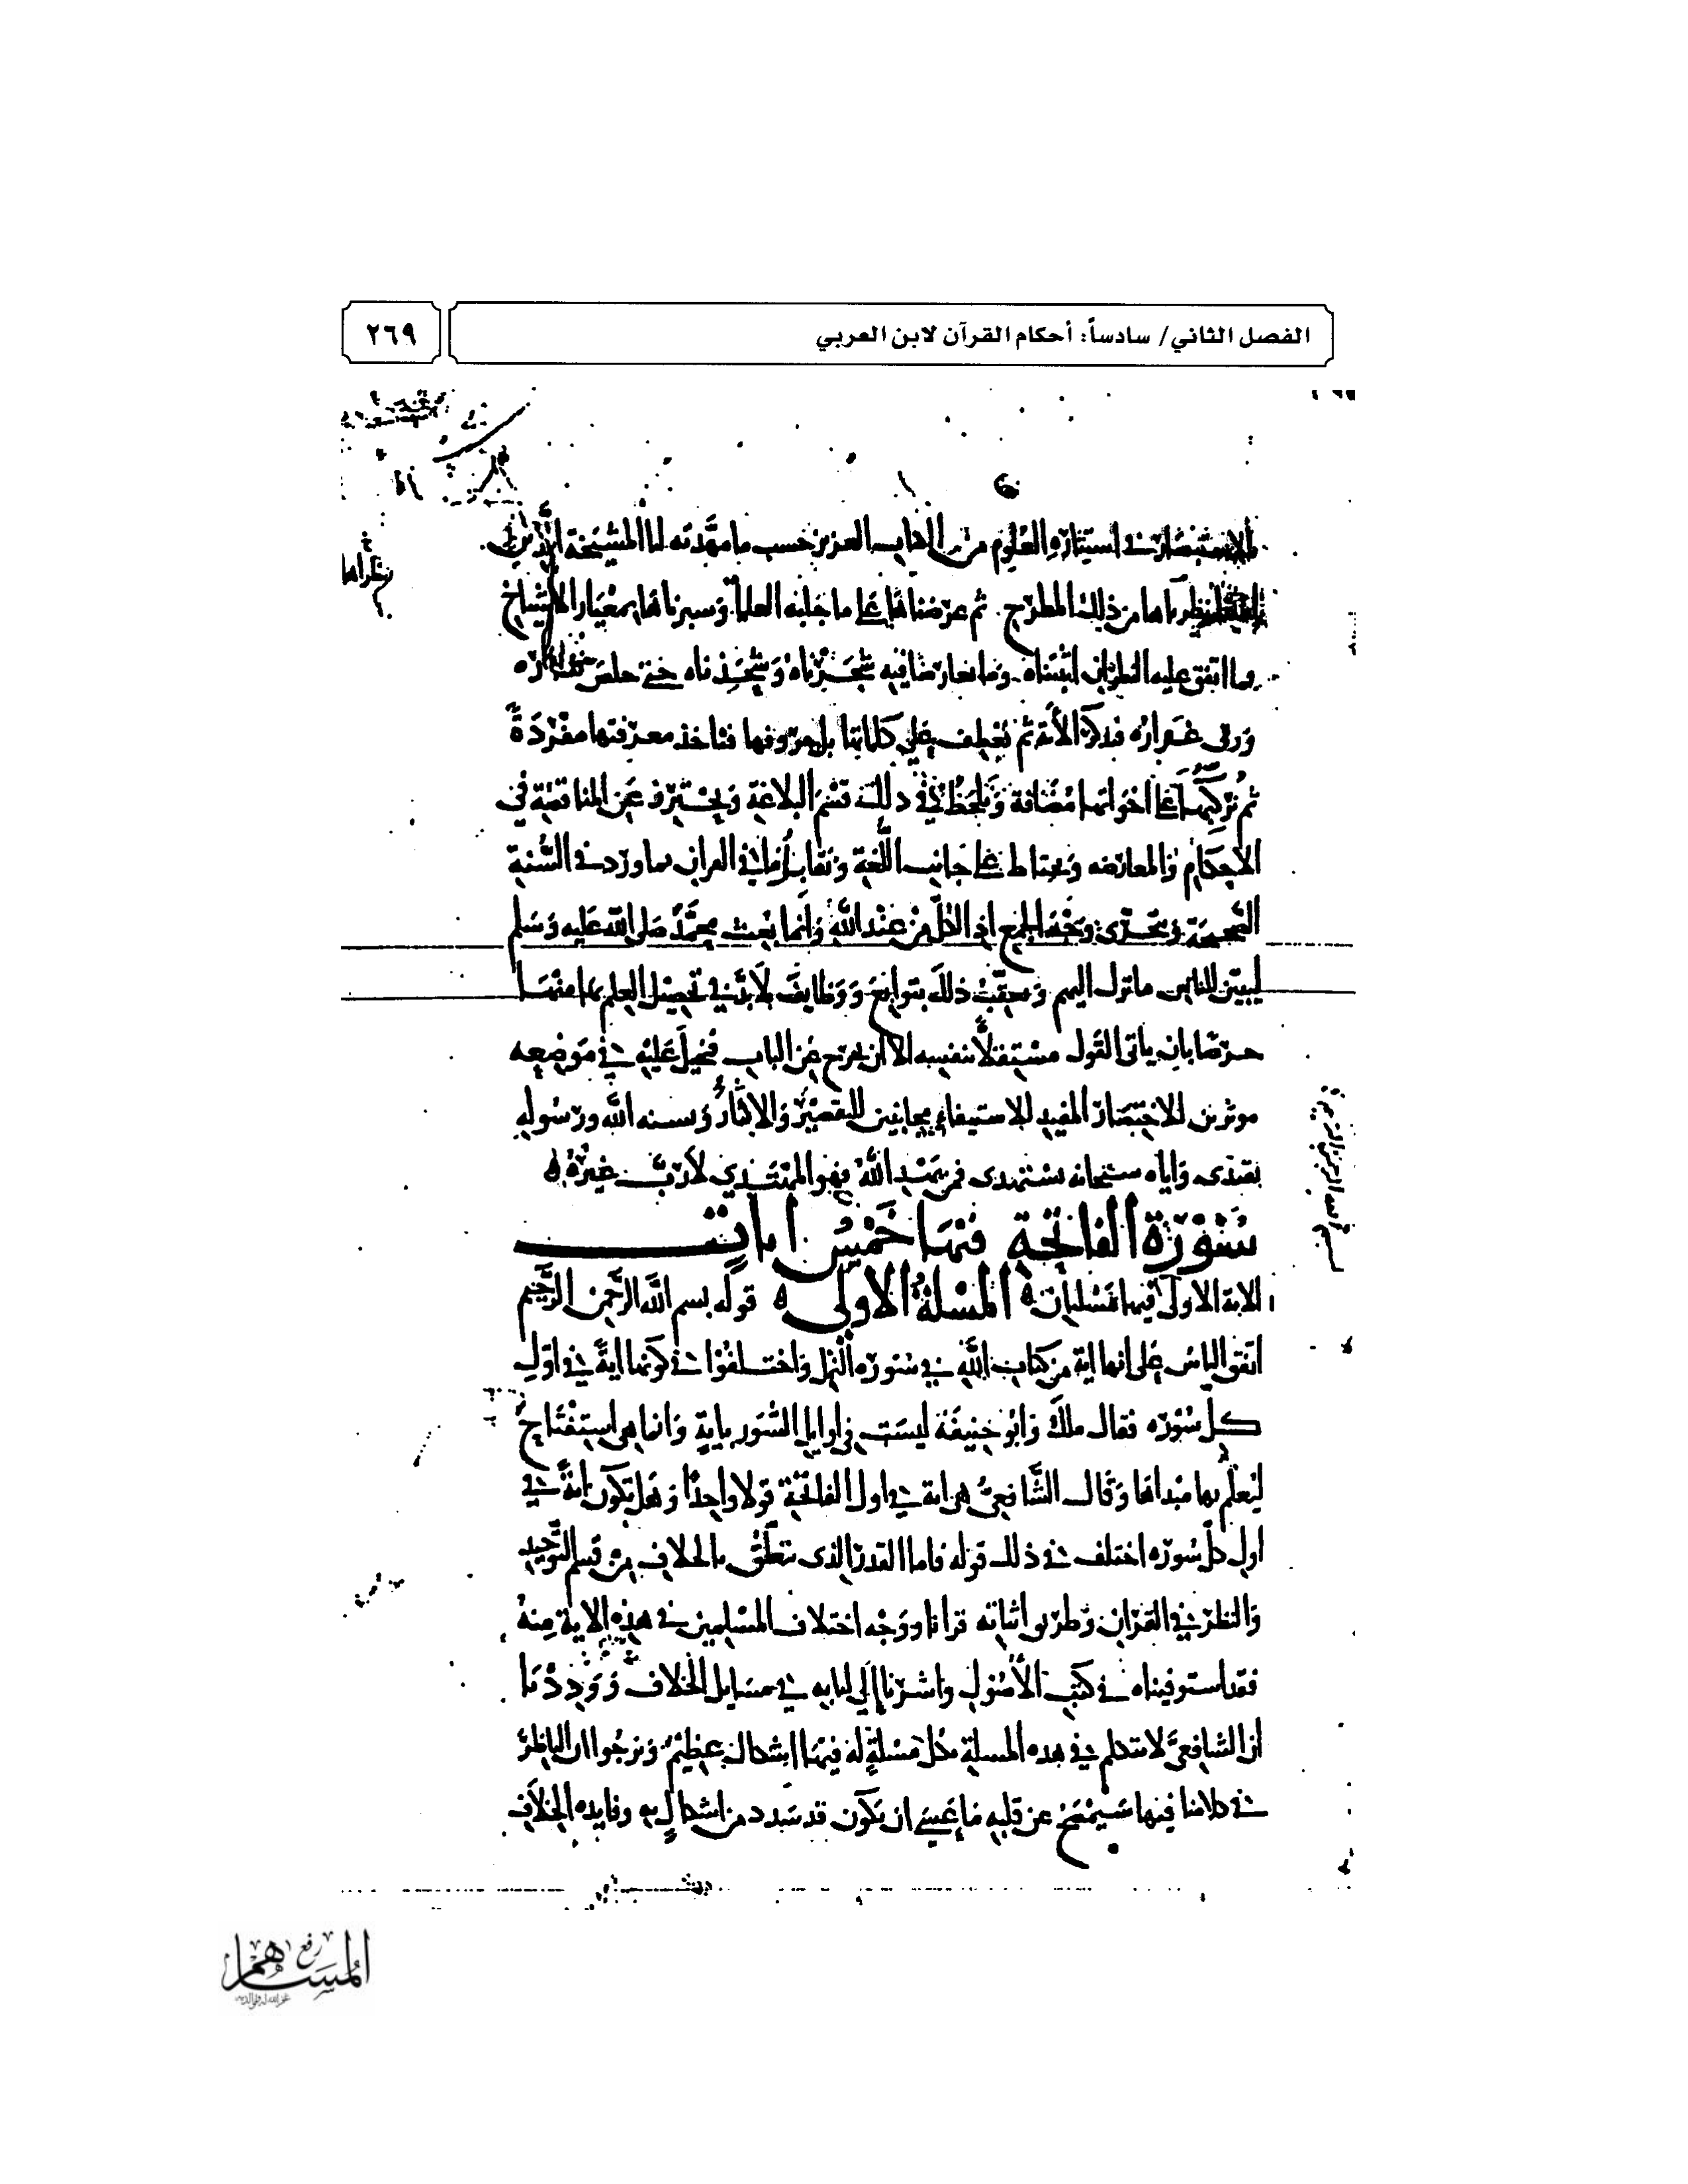 الفصل الثاني/ سادساً: أحكام القرآن لابن العربي
٢٦٩
في استثارة العلوم من الكتاب العزيز حسب ما مهدته لنا المشيخة الذين
من ذلك المطرح ثم عرضناها على ما جلبه العلما وسبرناها بمعيار الأشياخ
فما اتفق عليه النظران اثبتناه وما تعارض فيه شجرناه وشحذناه حتى خلص نضاره
وورق عراره فنذكر الأية ثم نعطف على كلماتها بل حروفها فناخذ معرفتها مفردة
ثم نركبها على اخواتها مضافة ونلحظ في ذلك قسم البلاغة ونحترز عن المناقضة في
الاحكام والمعارضه ونحتاط على جانب اللغة ونقابلها في القران بما ورد في السنة
الصحيحة ونتحرى وجه الجمع اذ الكل من عند الله وانما بعث محمد صلى الله عليه وسلم
ليبين للناس ما نزل اليهم ونعقب ذلك بتوابع ووظايف لا بد في تحصيل العلم بها منها
حرصا بان ياتى القول مستقلا بنفسه الا ان يخرج عن الباب فنحيل عليه في موضعه
موثرين للاختصار المفيد للاستيفاء مجانبين للتقصير والاكثار وبسنه الله ورسوله
نقتدى واياه سبحانه نستهدى فمن يهد الله فهو المهتدي لا رب غيره
سورة الفاتحة فيها خمس ايات
الاية الاولى فيها مسئلتان المسلة الاولى قوله بسم الله الرحمن الرحيم
اتفق الناس على انها اية من كتاب الله في سوره النمل واختلفوا في كونها اية في اول
كل سوره فقال ملك وابو حنيفة ليست في اوايل السور باية وانما هى استفتاح
ليعلم بها مبداها وقال الشافعي هى اية في اول الفاتحة قولا واحدا وهل تكون اية في
اول كل سوره اختلف في ذلك قوله فاما القدر الذى يتعلق بالخلاف من قسم التوحيد
والنظر في القران وطريق اثباته قرانا ووجه اختلاف المسلمين في هذه الاية منه
فقد استوفيناه في كتب الأصول واشرنا الى لبابه في مسايل الخلاف ووددنا
ان الشافعي لا يتكلم في هذه المسلة فكل مسلة له فيها اشكال عظيم ونرجوا ان الناظر
في كلامنا فيها سيمتح عن قلبه ما عسى ان يكون قد سدد من اشكال به وفايده الخلاف